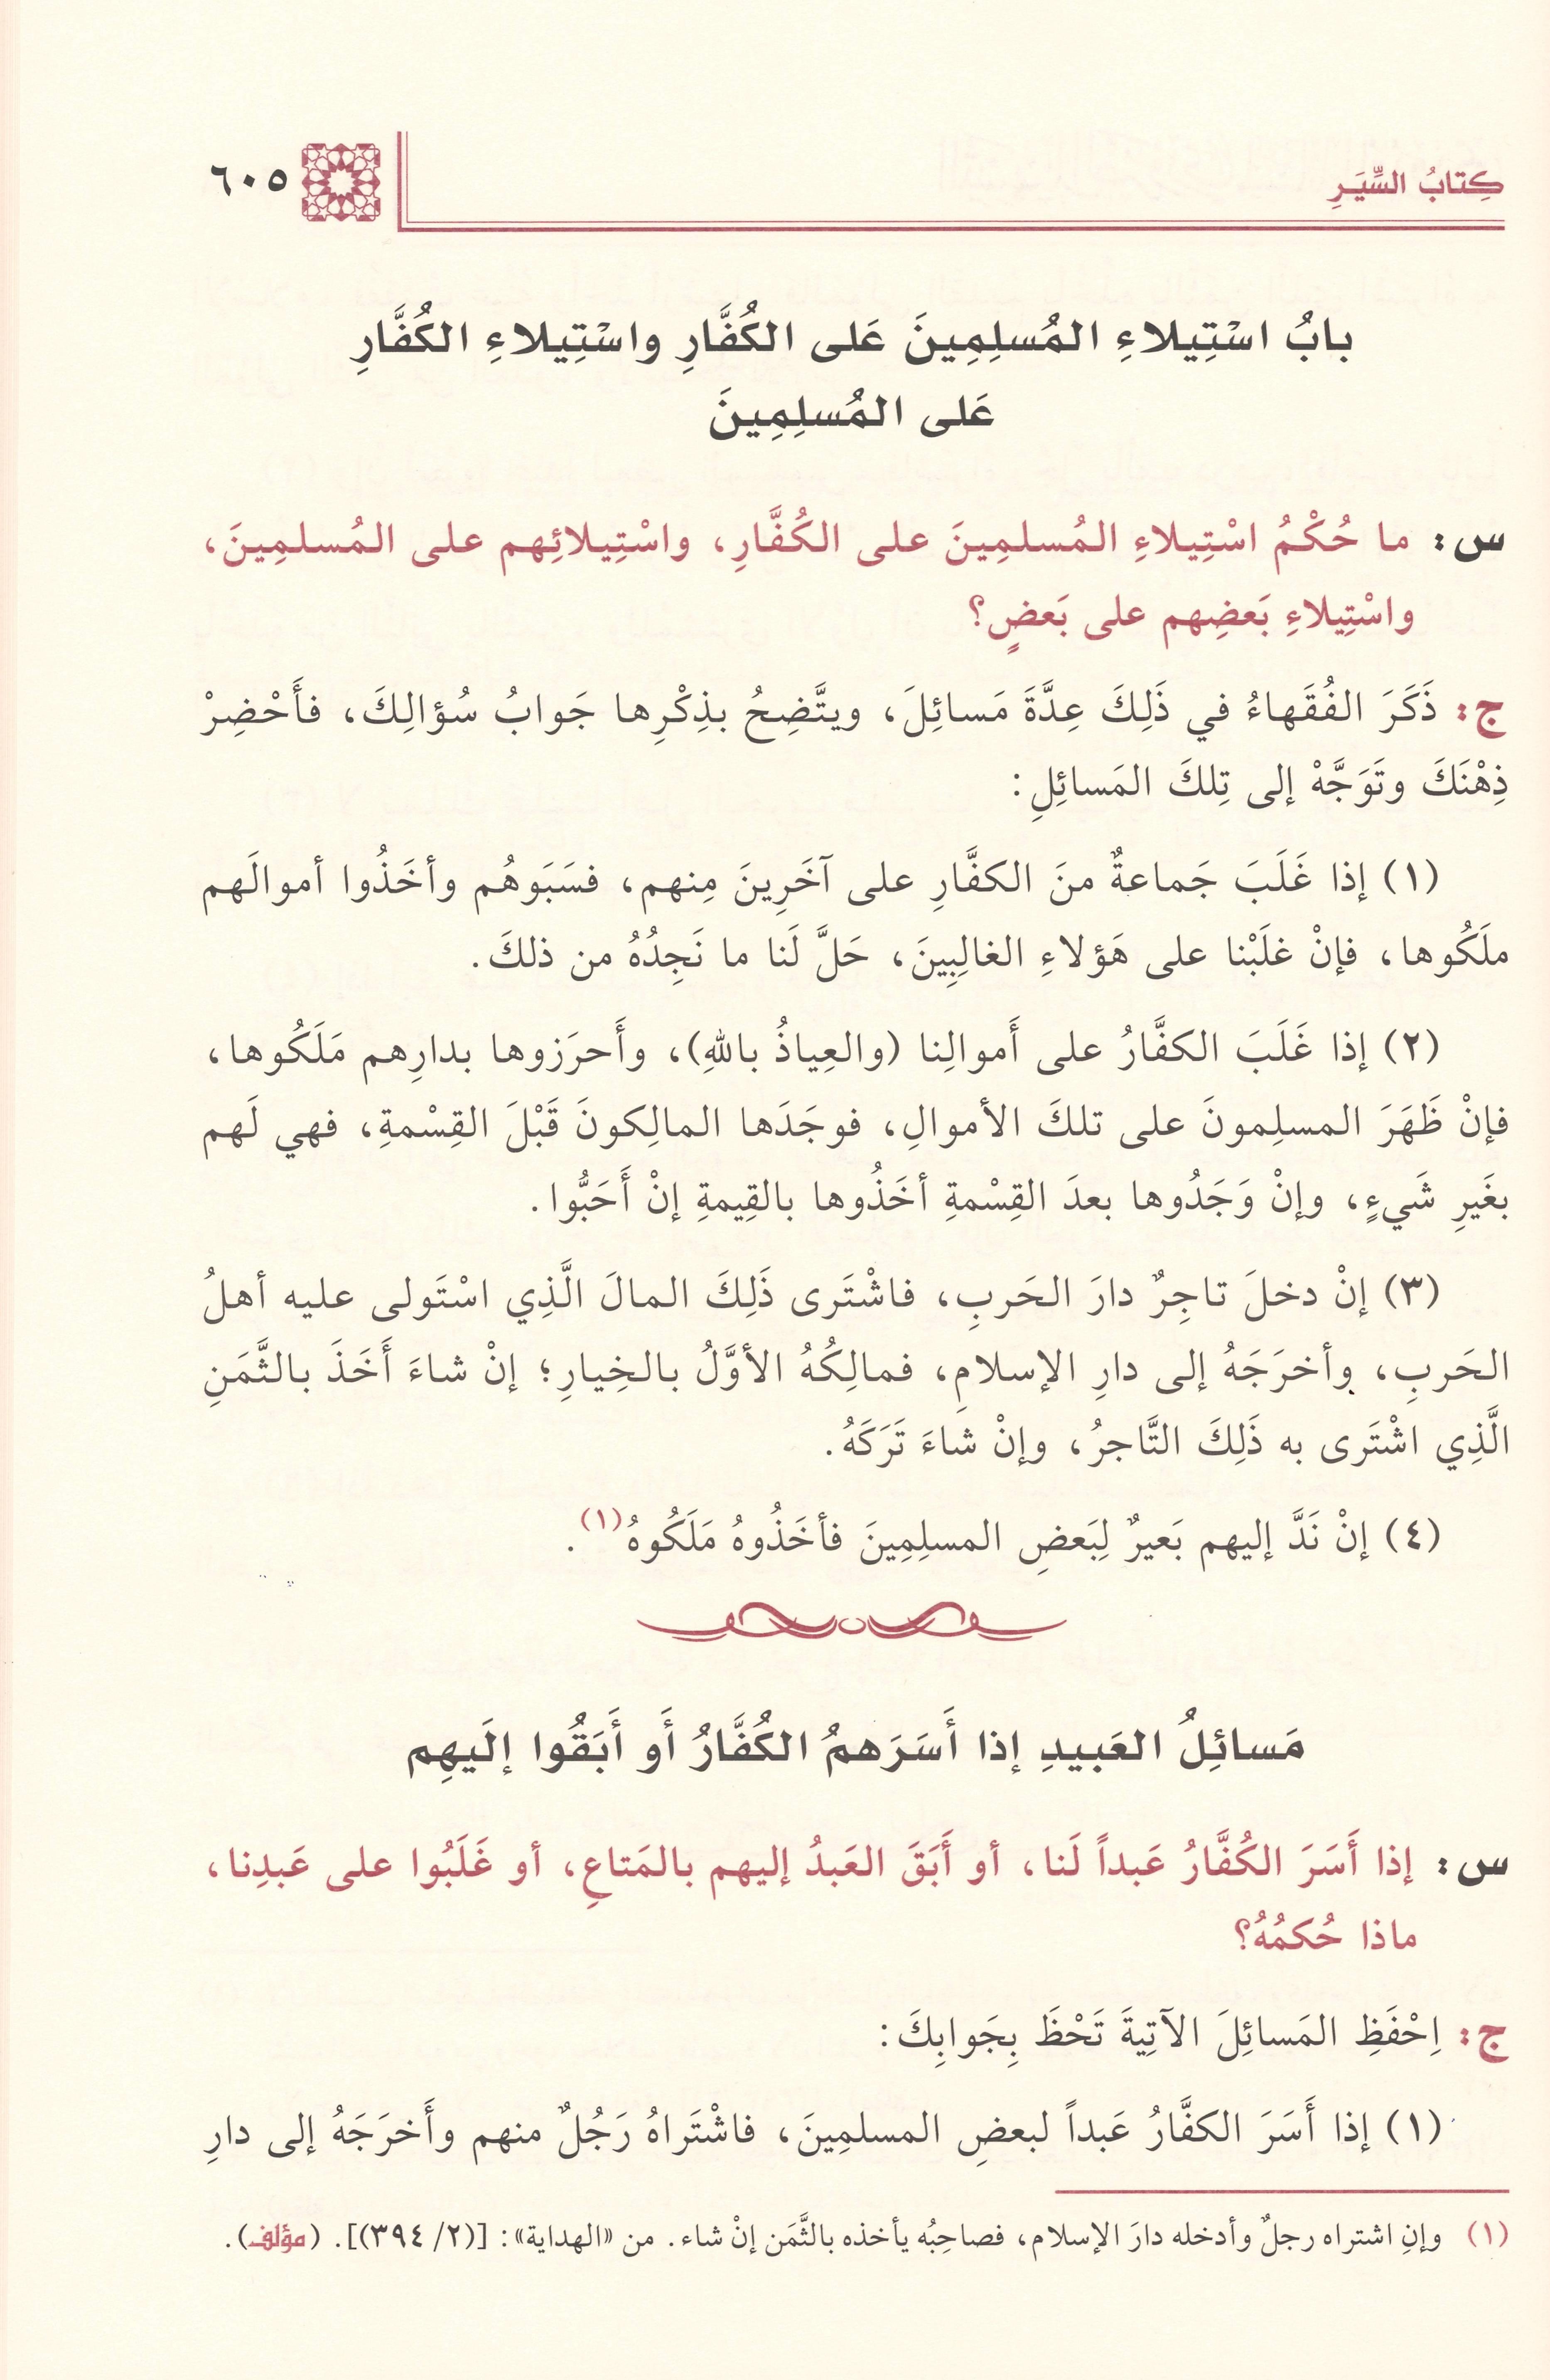 كِتابُ السِّيَرِ
٦٠٥
بابُ اسْتِيلاءِ المُسلِمِينَ عَلى الكُفَّارِ واسْتِيلاءِ الكُفَّارِ
عَلى المُسلِمِينَ
س: ما حُكْمُ اسْتِيلاءِ المُسلمِينَ على الكُفَّارِ، واسْتِيلائِهم على المُسلمِينَ،
واسْتِيلاءِ بَعضِهم على بَعضٍ؟
ج: ذَكَرَ الفُقَهاءُ في ذَلِكَ عِدَّةَ مَسائِلَ، ويتَّضِحُ بذِكْرِها جَوابُ سُؤالِكَ، فأَحْضِرْ
ذِهْنَكَ وتَوَجَّهْ إلى تِلكَ المَسائِلِ:
(١) إذا غَلَبَ جَماعةٌ منَ الكفَّارِ على آخَرِينَ مِنهم، فسَبَوهُم وأخَذُوا أموالَهم
ملَكُوها، فإنْ غلَبْنا على هَؤلاءِ الغالِبِينَ، حَلَّ لَنا ما نَجِدُهُ من ذلكَ.
(٢) إذا غَلَبَ الكفَّارُ على أَموالِنا (والعِياذُ باللهِ)، وأَحرَزوها بدارِهم مَلَكُوها،
فإنْ ظَهَرَ المسلِمونَ على تلكَ الأموالِ، فوجَدَها المالِكونَ قَبْلَ القِسْمةِ، فهي لَهم
بغَيرِ شَيءٍ، وإنْ وَجَدُوها بعدَ القِسْمةِ أخَذُوها بالقِيمةِ إنْ أَحَبُّوا.
(٣) إنْ دخلَ تاجِرٌ دارَ الحَربِ، فاشْتَرى ذَلِكَ المالَ الَّذِي اسْتَولى عليه أهلُ
الحَربِ، وأخرَجَهُ إلى دارِ الإسلامِ، فمالِكُهُ الأوَّلُ بالخِيارِ؛ إنْ شاءَ أَخَذَ بالثَّمَنِ
الَّذِي اشْتَرى به ذَلِكَ التَّاجرُ، وإنْ شاءَ تَرَكَهُ.
(٤) إنْ نَدَّ إليهم بَعيرٌ لِبَعضِ المسلِمِينَ فأخَذُوهُ مَلَكُوهُ(١).
مَسائِلُ العَبيدِ إذا أَسَرَهمُ الكُفَّارُ أَو أَبَقُوا إلَيهِم
س: إذا أَسَرَ الكُفَّارُ عَبداً لَنا، أو أَبَقَ العَبدُ إليهم بالمَتاعِ، أو غَلَبُوا على عَبدِنا،
ماذا حُكمُهُ؟
ج: اِحْفَظِ المَسائِلَ الآتِيةَ تَحْظَ بِجَوابِكَ:
(١) إذا أَسَرَ الكفَّارُ عَبداً لبعضِ المسلمِينَ، فاشْتَراهُ رَجُلٌ منهم وأَخرَجَهُ إلى دارِ
(١) وإنِ اشتراه رجلٌ وأدخله دارَ الإسلام، فصاحِبُه يأخذه بالثَّمَن إنْ شاء. من «الهداية»: [(٢/ ٣٩٤)]. (مؤلف).